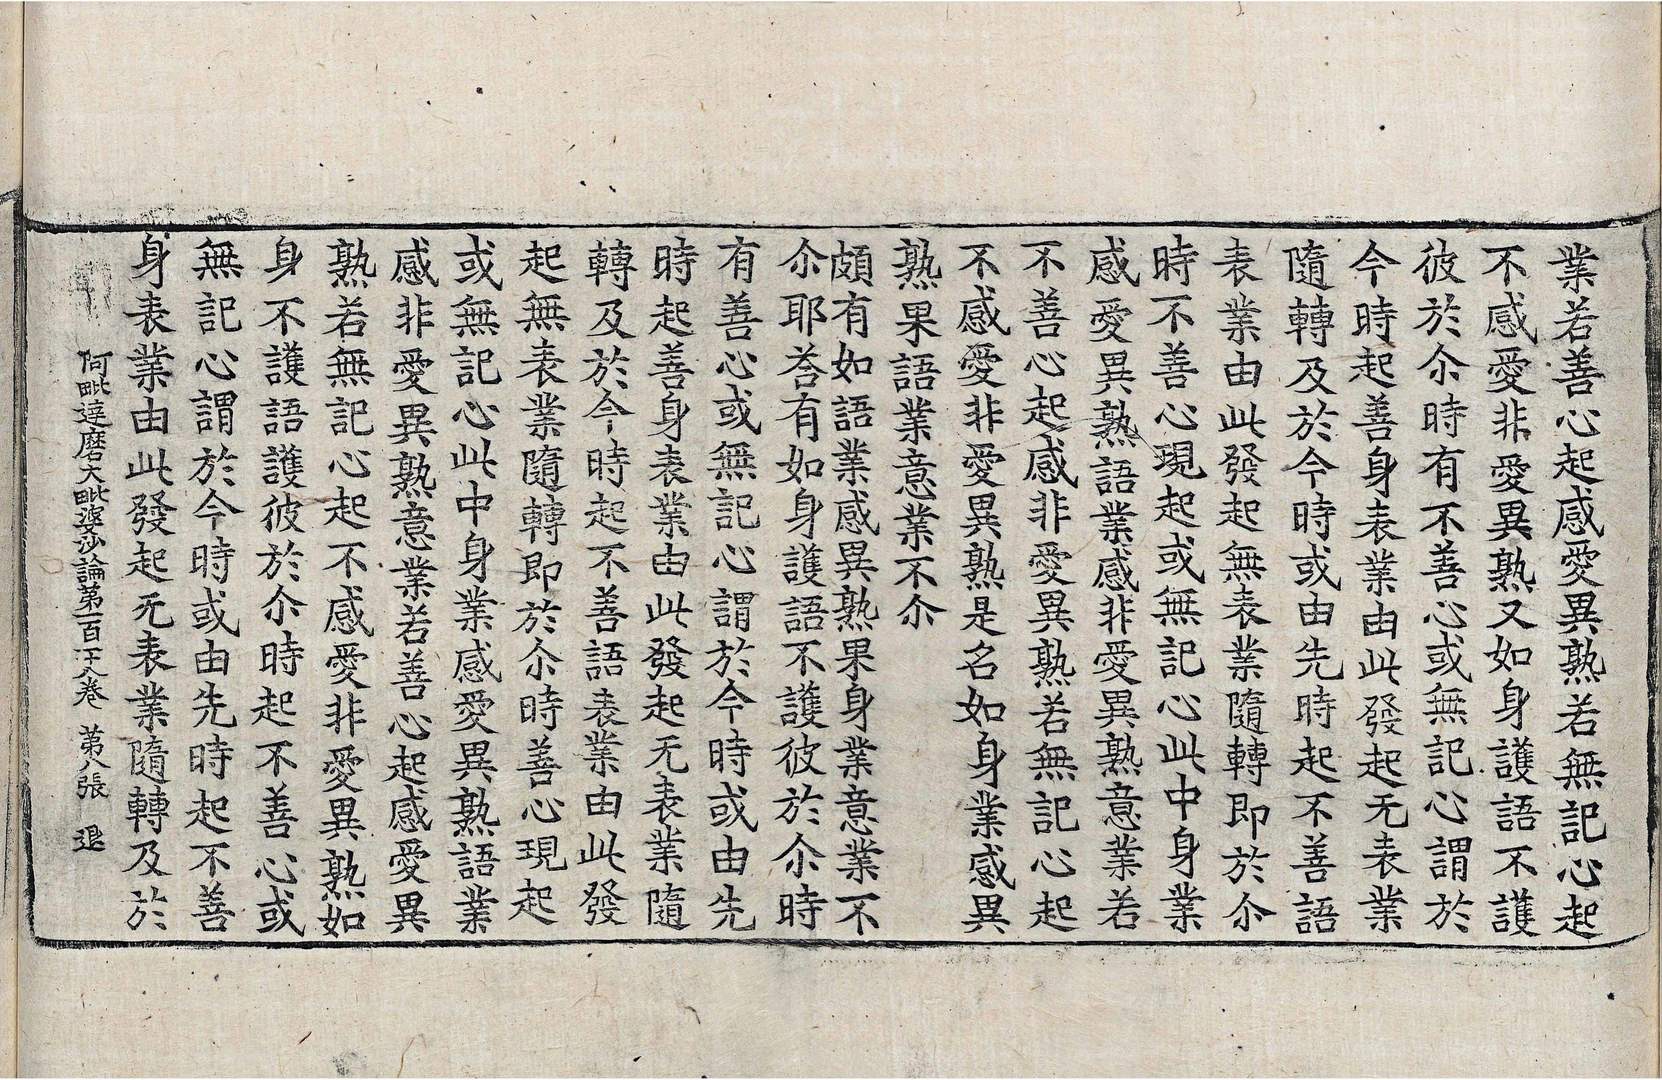 業若善心起感愛異熟若無記心起
不感愛非愛異熟又如身護語不護
彼於尒時有不善心或無記心謂於
今時起善身表業由此發起无表業
隨轉及於今時或由先時起不善語
表業由此發起無表業隨轉即於尒
時不善心現起或無記心此中身業
感愛異熟語業感非愛異熟意業若
不善心起感非愛異熟若無記心起
不感愛非愛異熟是名如身業感異
熟果語業意業不尒
頗有如語業感異熟果身業意業不
尒耶荅有如身護語不護彼於尒時
有善心或無記心謂於今時或由先
時起善身表業由此發起无表業隨
轉及於今時起不善語表業由此發
起無表業隨轉即於尒時善心現起
或無記心此中身業感愛異熟語業
感非愛異熟意業若善心起感愛異
熟若無記心起不感愛非愛異熟如
身不護語護彼於尒時起不善心或
無記心謂於今時或由先時起不善
身表業由此發起无表業隨轉及於
阿毗達磨大毗婆沙論第一百十八卷 第八張 退